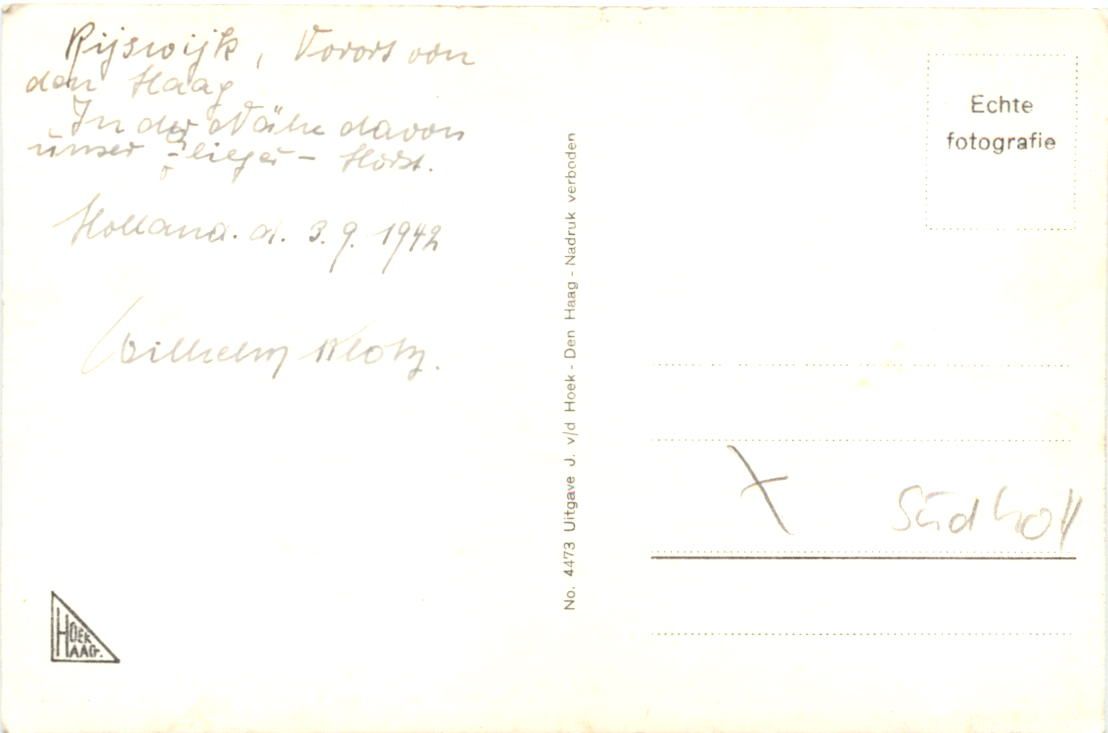 Rijswijk, Vorort von
den Haag
In der Nähe davon
unser Flieger-Horst.
Holland. d. 3.9.1942
Wilhelm Klotz.
No. 4473 Uitgave J. v/d Hoek - Den Haag - Nadruk verboden
Echte
fotografie
Südholl
HOEK
HAAG.